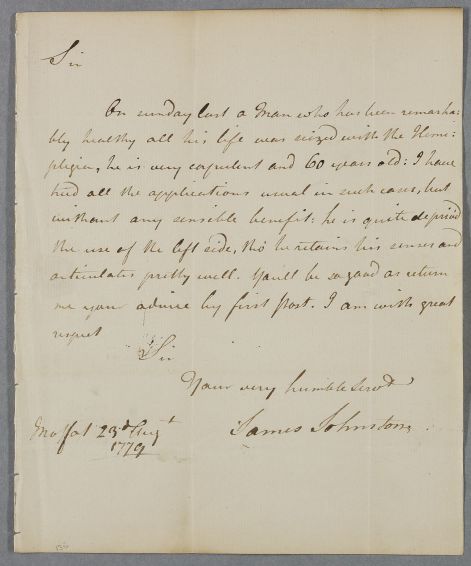 Sir
On sunday last a Man who has been remarka:
bly healthy all his life was seized with the Hemi:
plegia, he is very corpulent and 60 years old: I have
tried all the applications usual in such cases, but
without any sensible benefit: he is quite deprived
the use of the left side, tho' he retains his senses and
articulates pretty well. You'll be so good as return
me your advice by first post. I am with great
respect
Sir
Your very humble Servt
James Johnstone
Moffat 23d Augt
1779